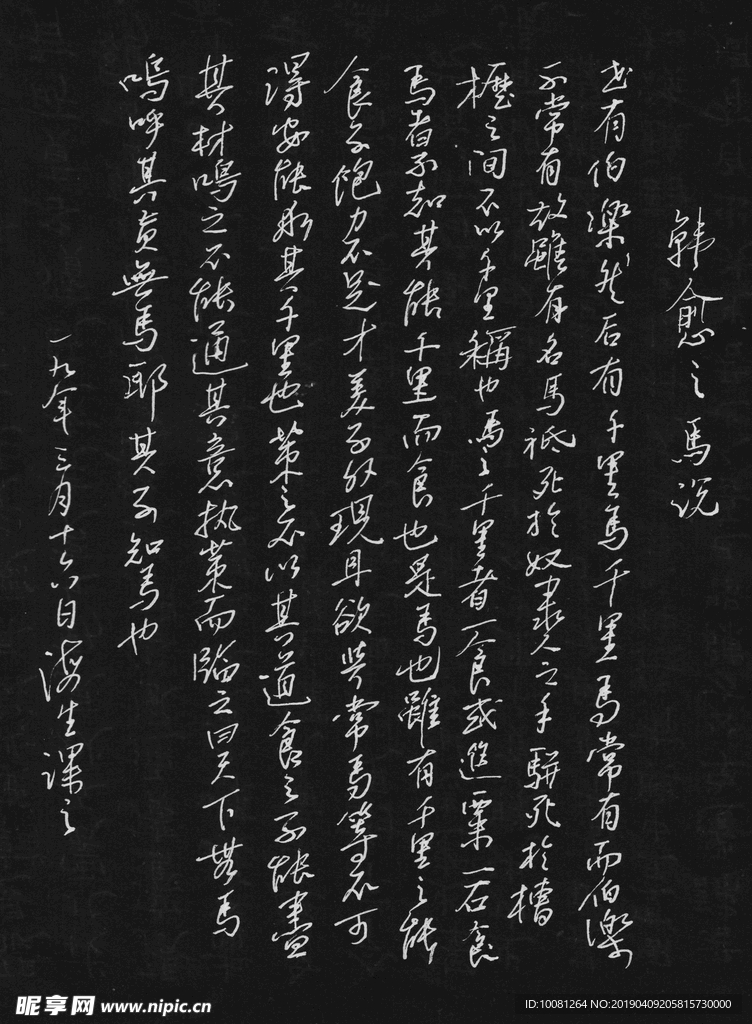 韓愈之馬说
世有伯樂然后有千里馬千里馬常有而伯樂
不常有故雖有名馬祗死於奴隶人之手駢死於槽
櫪之间不以千里稱也馬之千里者一食或盡粟一石食
馬者不知其能千里而食也是馬也雖有千里之能
食不飽力不足才美不外現且欲与常馬等不可
得安能求其千里也策之不以其道食之不能盡
其材鳴之不能通其意执策而臨之曰天下無馬
嗚呼其真無馬耶其不知馬也
一九年三月十六日海生课之
昵享网 www.nipic.cn
ID:10081264 NO:20190409205815730000